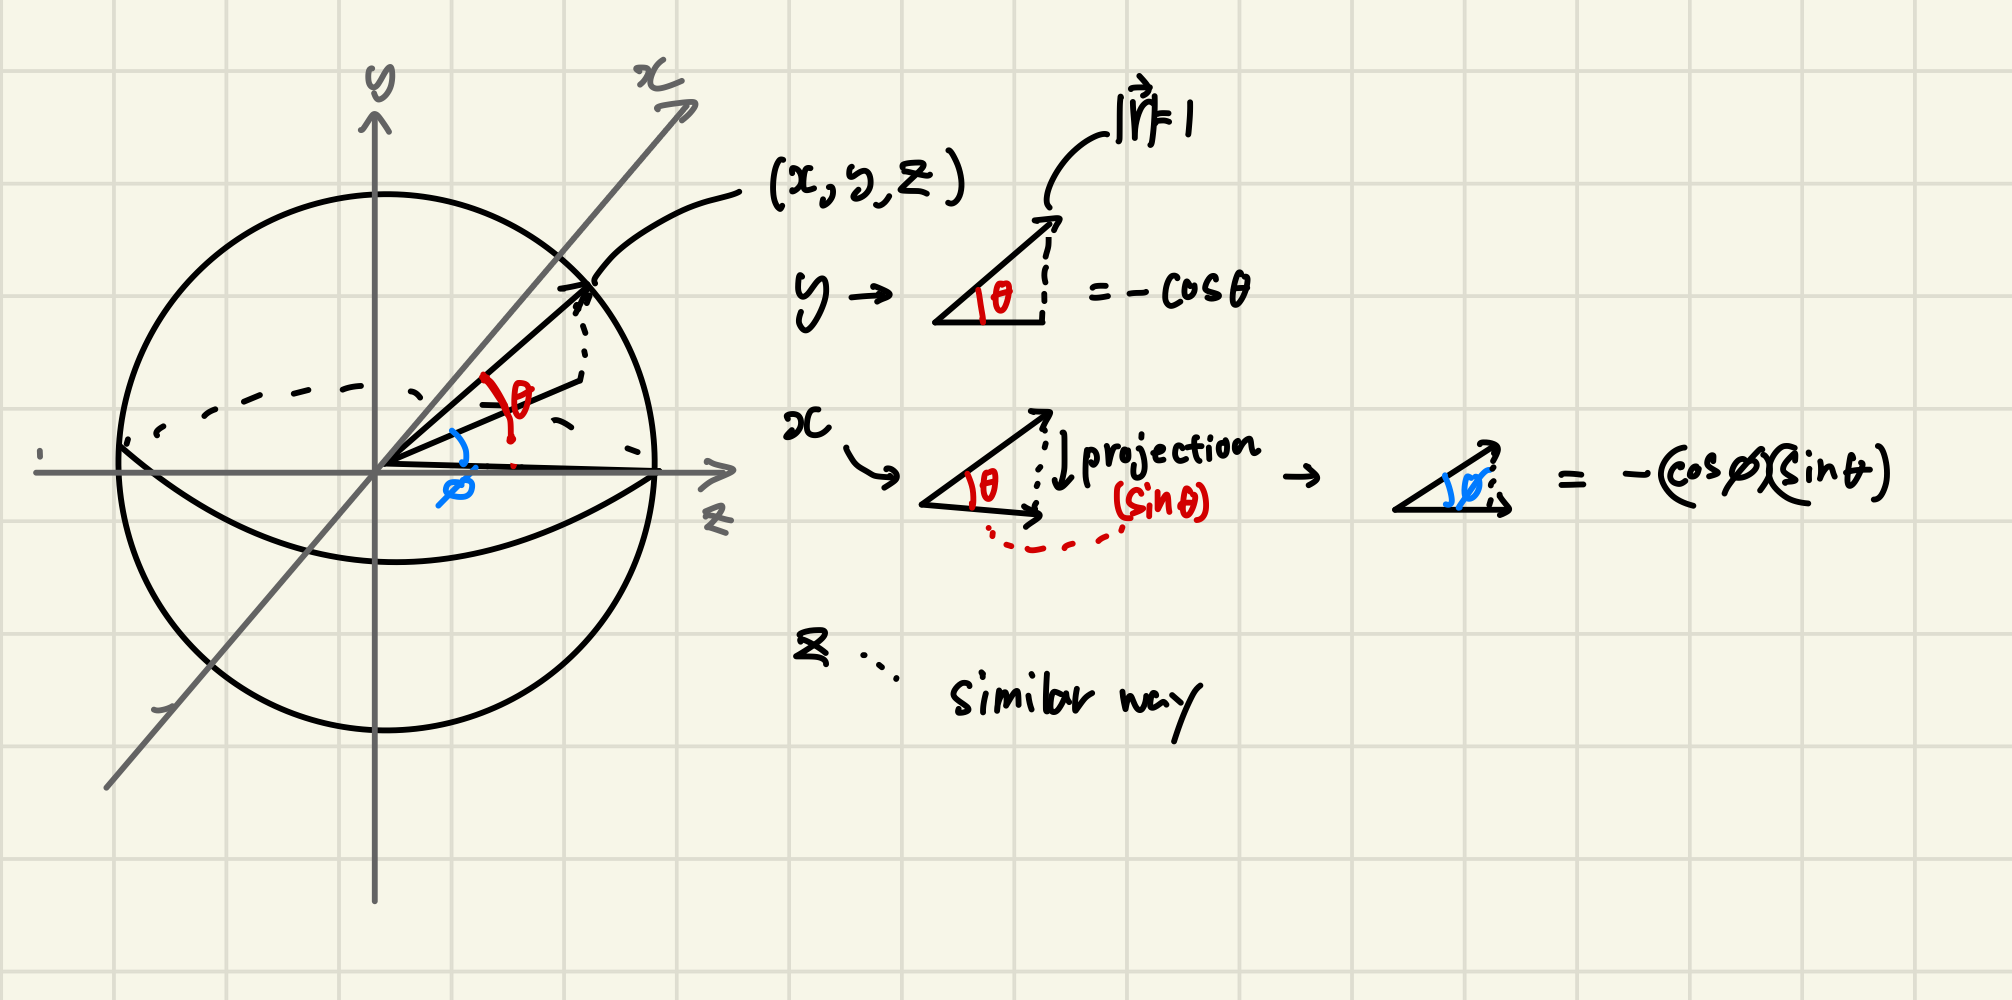 y
x
(x, y, z)
|r⃗|=1
y → θ = - cos θ
θ
ϕ
z
x
θ
↓ projection
(sin θ)
→ ϕ = -(cos ϕ)(sin θ)
z
similar way